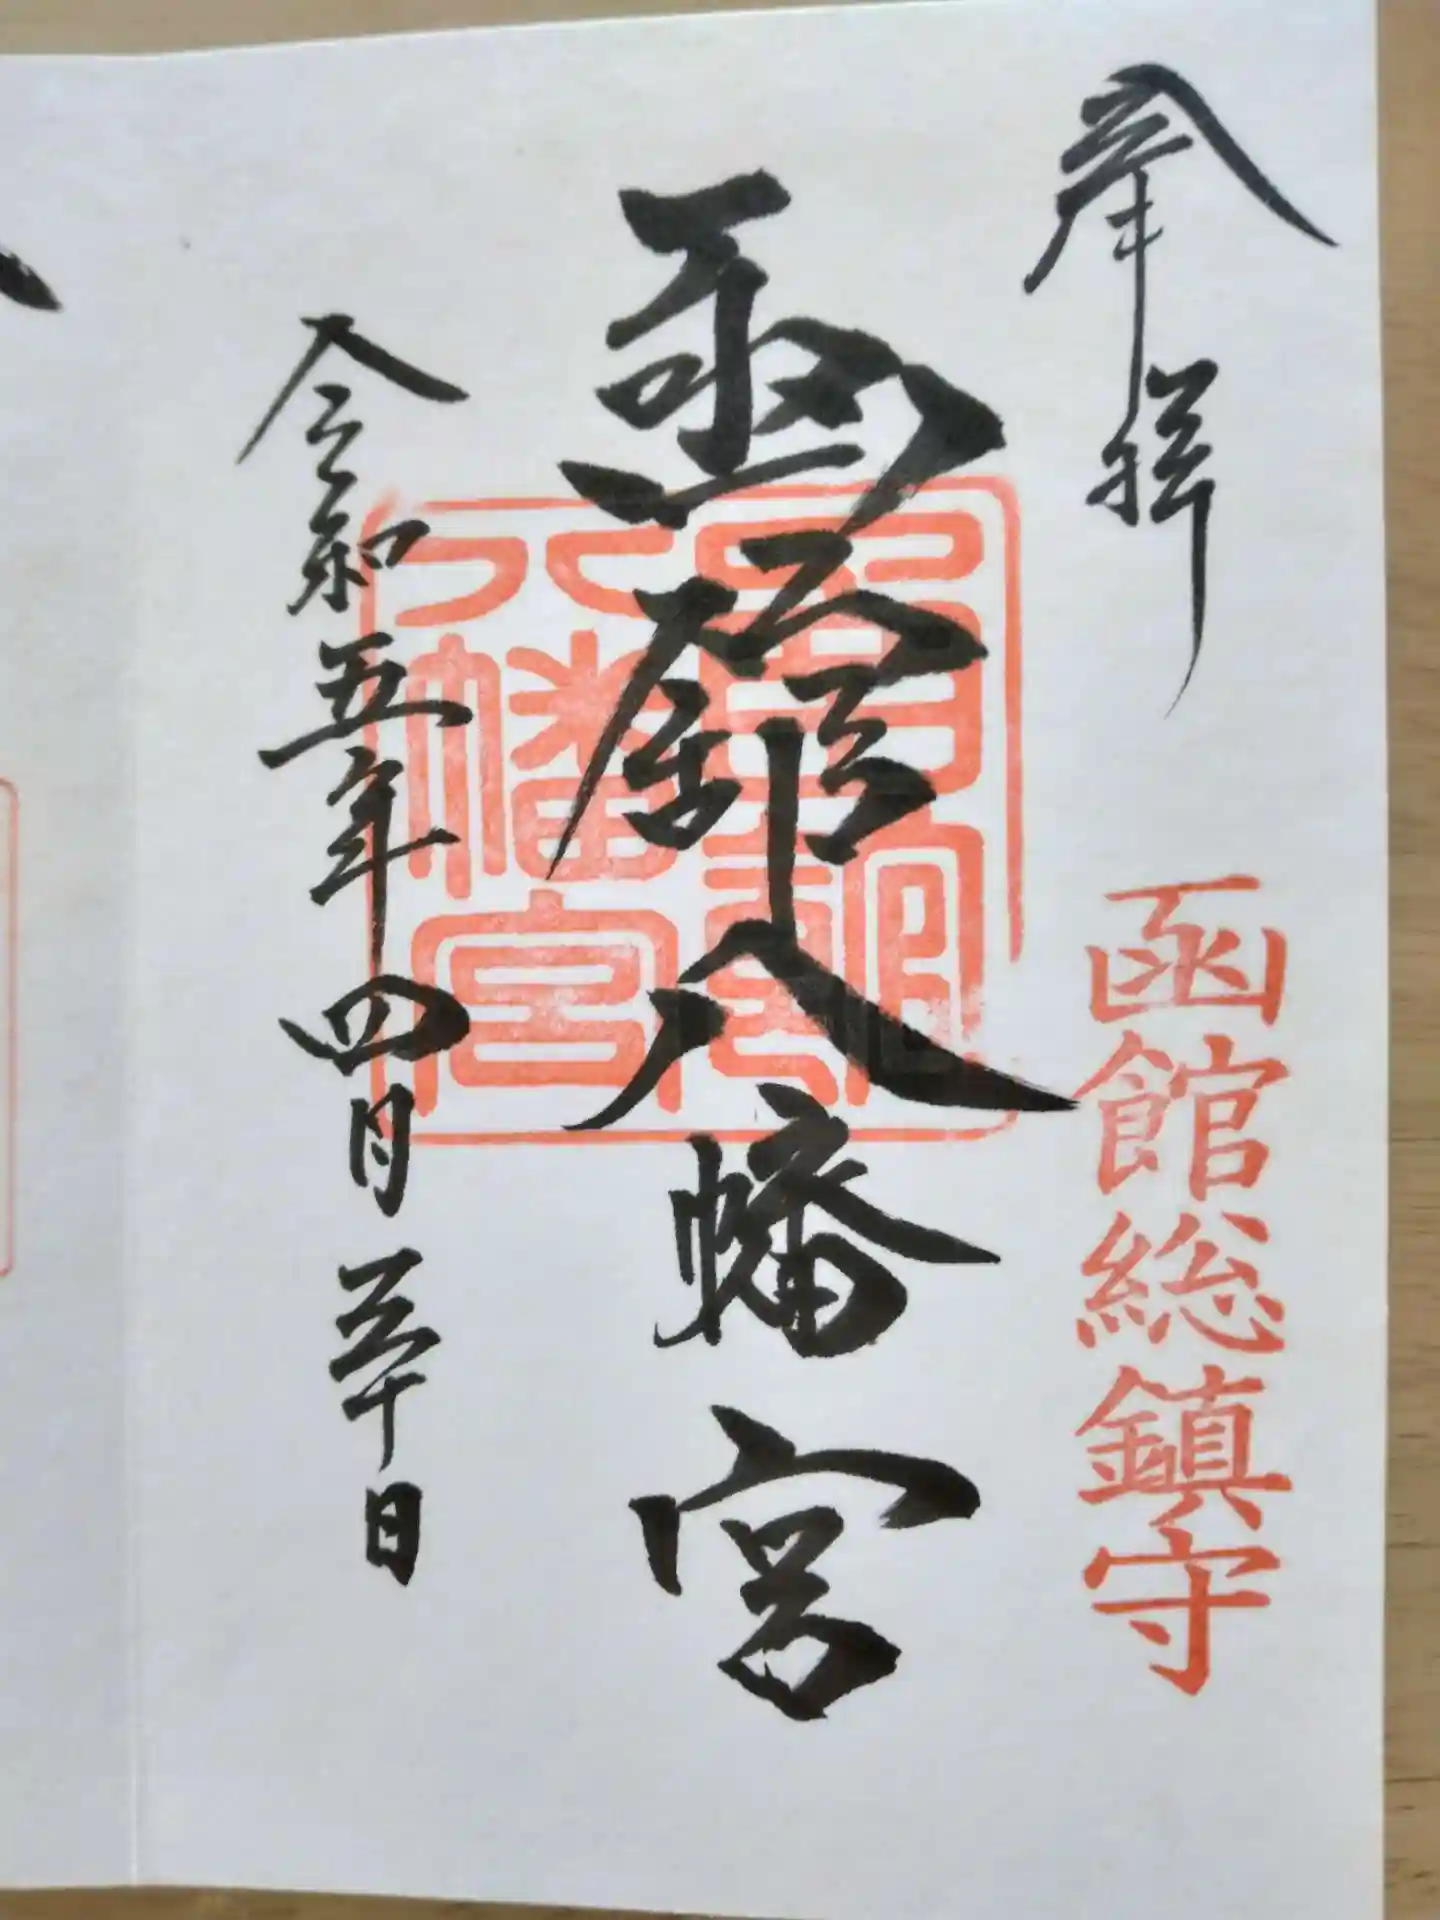 奉拝
函館総鎮守
函館八幡宮
函館八幡宮
令和五年四月三十日